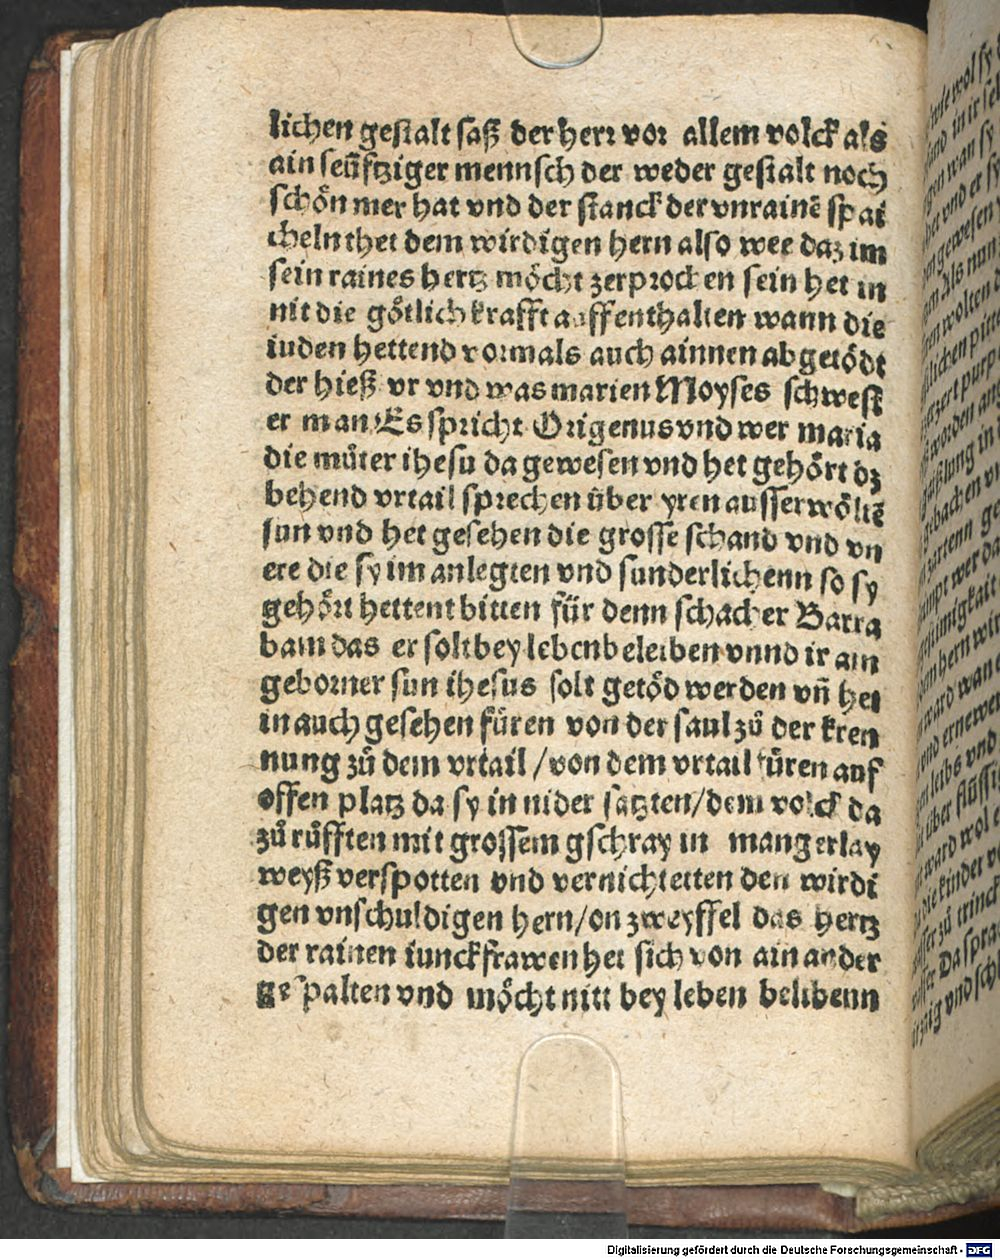 lichen gestalt saß der herr vor allem volck als
ain seüftziger mennsch der weder gestalt noch
schön mer hat vnd der stanck der vnrainē spai
cheln thet dem wirdigen hern also wee daz im
sein raines hertz möcht zerprochen sein het in
nit die götlich krafft auffenthalten wann die
iuden hettend vormals auch ainnen abgetödt
der hieß vr vnd was marien Moyses schwest
er man Es spricht Origenus vnd wer maria
die můter ihesu da gewesen vnd het gehört dz
behend vrtail sprechen über yren ausserwöltē
sun vnd het gesehen die grosse schand vnd vn
ere die sy im anlegten vnd sunderlichenn so sy
gehört hettent bitten für denn schacher Barra
bam das er solt bey leben beleiben vnnd ir ain
geborner sun ihesus solt getöd werden vñ het
in auch gesehen füren von der saul zů der kren
nung zů dem vrtail / von dem vrtail füren auf
offen platz da sy in nider satzten / dem volck da
zů růfften mit grossem gschray in mangerlay
weyß verspotten vnd vernichtetten den wirdi
gen vnschuldigen hern / on zweyffel das hertz
der rainen iunckfrawen het sich von ain ander
gespalten vnd möcht nitt bey leben belibenn
Digitalisierung gefördert durch die Deutsche Forschungsgemeinschaft - DFG